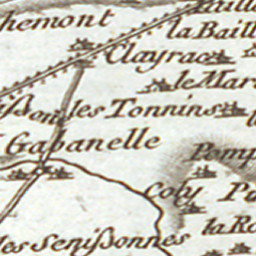 hemont
la Baill
Clayrac
le Mar
les Tonnins
Gabanelle
Pomp
Coly
Po
la Ro
les Senißonnes